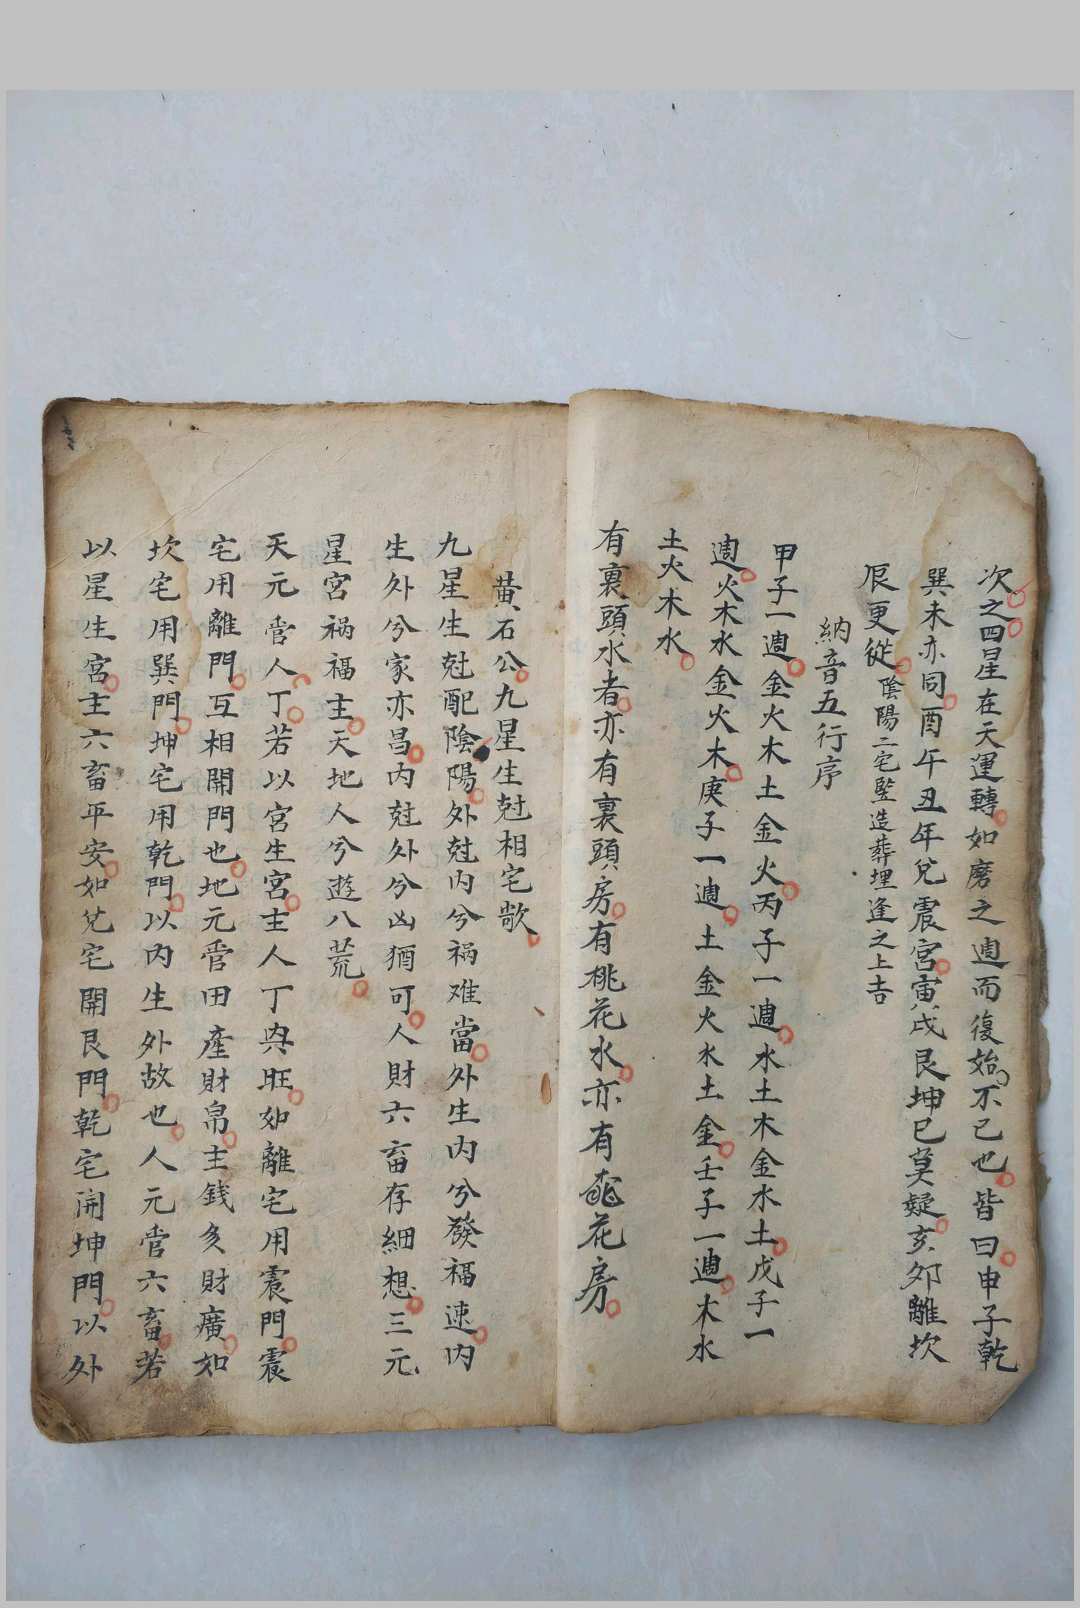 次之四星在天運轉如磨之週而復始不已也皆曰申子乾
巽未亦同酉午丑年兌震宮寅戌艮坤巳莫疑亥夘離坎
辰更從陰陽二宅竪造葬埋逢之上吉
納音五行序
甲子一週金火木土金火丙子一週水土木金水土戊子一
週火木水金火木庚子一週土金火水土金壬子一週木水
土火木水
有裏頭水者亦有裏頭房有桃花水亦有花房
黄石公九星生尅相宅歌
九星生尅配陰陽外尅内兮禍难當外生内兮發福速内
生外兮家亦昌内尅外兮凶猶可人財六畜存細想三元
星宮禍福主天地人兮遊八荒
天元管人丁若以宮生宮主人丁興旺如離宅用震門震
宅用離門互相開門也地元管田產財帛主錢多財廣如
坎宅用巽門坤宅用乾門以内生外故也人元管六畜若
以星生宮主六畜平安如兌宅開艮門乾宅開坤門以外